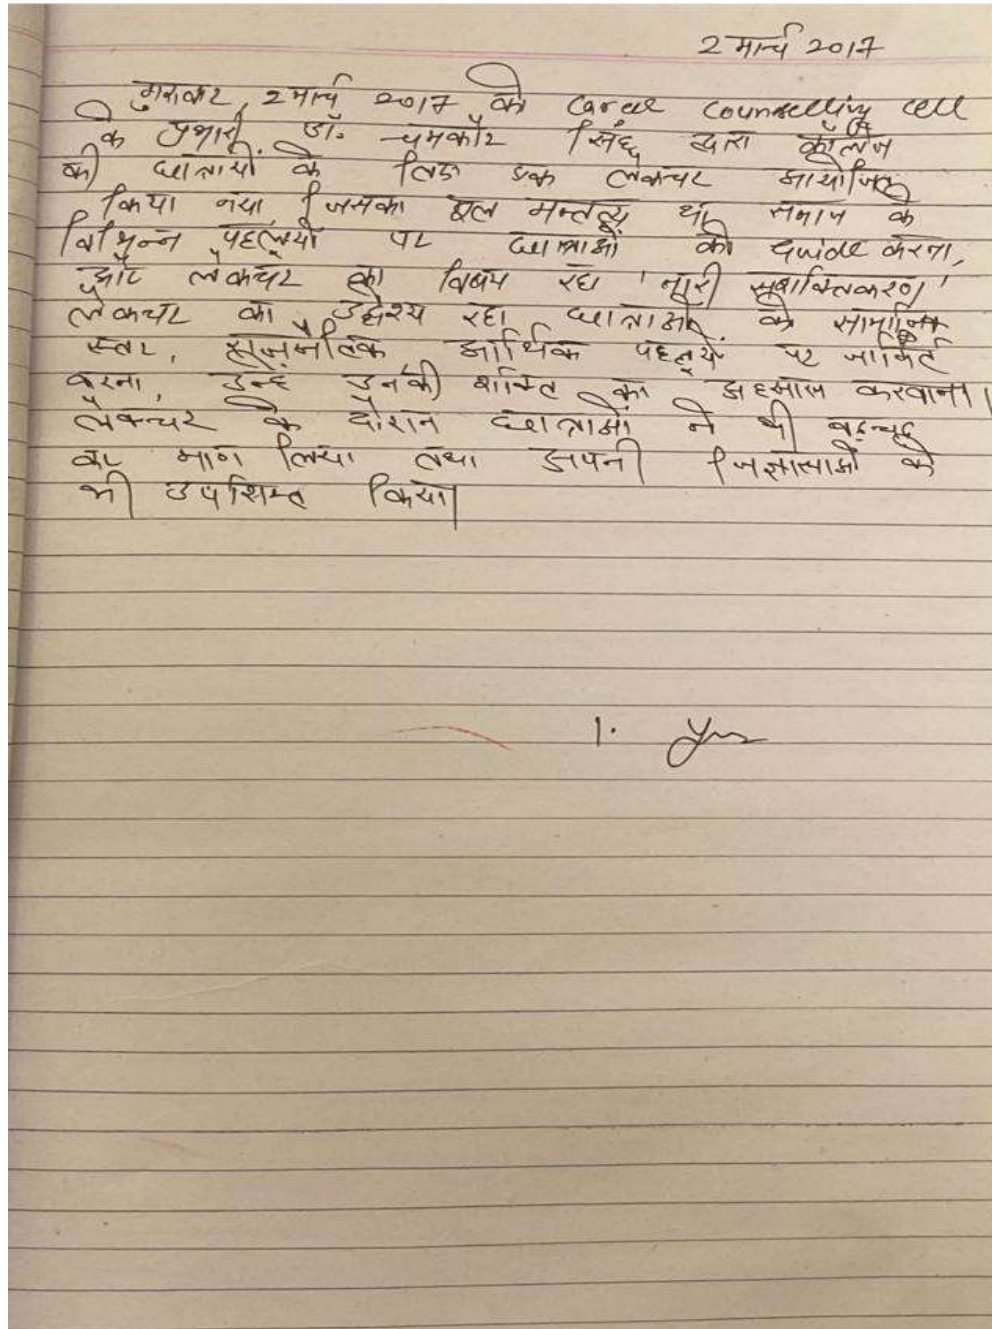 2 मार्च 2017
गुरुवार, 2 मार्च 2017 को Career Counselling cell
के प्रभारी डॉ. चमकौर सिंह द्वारा कॉलेज
की छात्रायों के लिए एक लेक्चर आयोजित
किया गया, जिसका मूल मन्तव्य था समाज के
विभिन्न पहलूयों पर छात्राओं को Guide करना,
और लेक्चर का विषय रहा 'नारी सशक्तिकरण'
लेक्चर का उद्देश्य रहा छात्राओं को सामाजिक
स्तर, राजनैतिक आर्थिक पहलूयों पर जागृत
करना, उन्हें उनकी शक्ति का अहसास करवाना।
लेक्चर के दौरान छात्राओं ने भी बढ़-चढ़
कर भाग लिया तथा अपनी जिज्ञासाओं को
भी उपस्थित किया।
1.